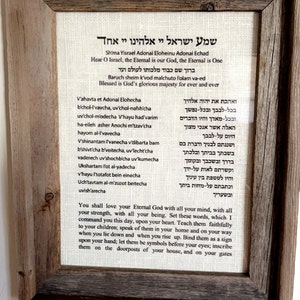 שמע ישראל יי אלהינו יי אחד
Sh'ma Yisrael Adonai Eloheinu Adonai Echad
Hear O Israel, the Eternal is our God, the Eternal is One
ברוך שם כבוד מלכותו לעולם ועד
Baruch sheim k'vod malchuto l'olam va-ed
Blessed is God's glorious majesty for ever and ever
V'ahavta et Adonai Elohecha
b'chol-l'vavcha, uv'chol-nafsh'cha
uv'chol-m'odecha V'hayu had'varim
ha-eileh asher Anochi m'tzav'cha
hayom al-l'vavecha
V'shinantam l'vanecha v'dibarta bam
b'shivt'cha b'veitecha, uv'lecht'cha
vaderech uv'shochb'cha uvkumecha
Ukshartam l'ot al-yadecha
v'hayu l'totafot bein einecha
Uch'tavtam al-m'zuzot beitecha
uvish'arecha
ואהבת את יהוה אלהיך
בכל-לבבך ובכל-נפשך
ובכל-מאדך והיו הדברים
האלה אשר אנכי מצוך
היום על-לבבך
ושננתם לבניך ודברת בם
בשבתך בביתך ובלכתך
בדרך ובשכבך ובקומך
וקשרתם לאות על-ידך
והיו לטטפת בין עיניך
וכתבתם על-מזזות ביתך
ובשעריך
You shall love your Eternal God with all your mind, with all
your strength, with all your being. Set these words, which I
command you this day, upon your heart. Teach them faithfully
to your children; speak of them in your home and on your way
when you lie down and when you rise up. Bind them as a sign
upon your hand; let them be symbols before your eyes; inscribe
them on the doorposts of your house, and on your gates